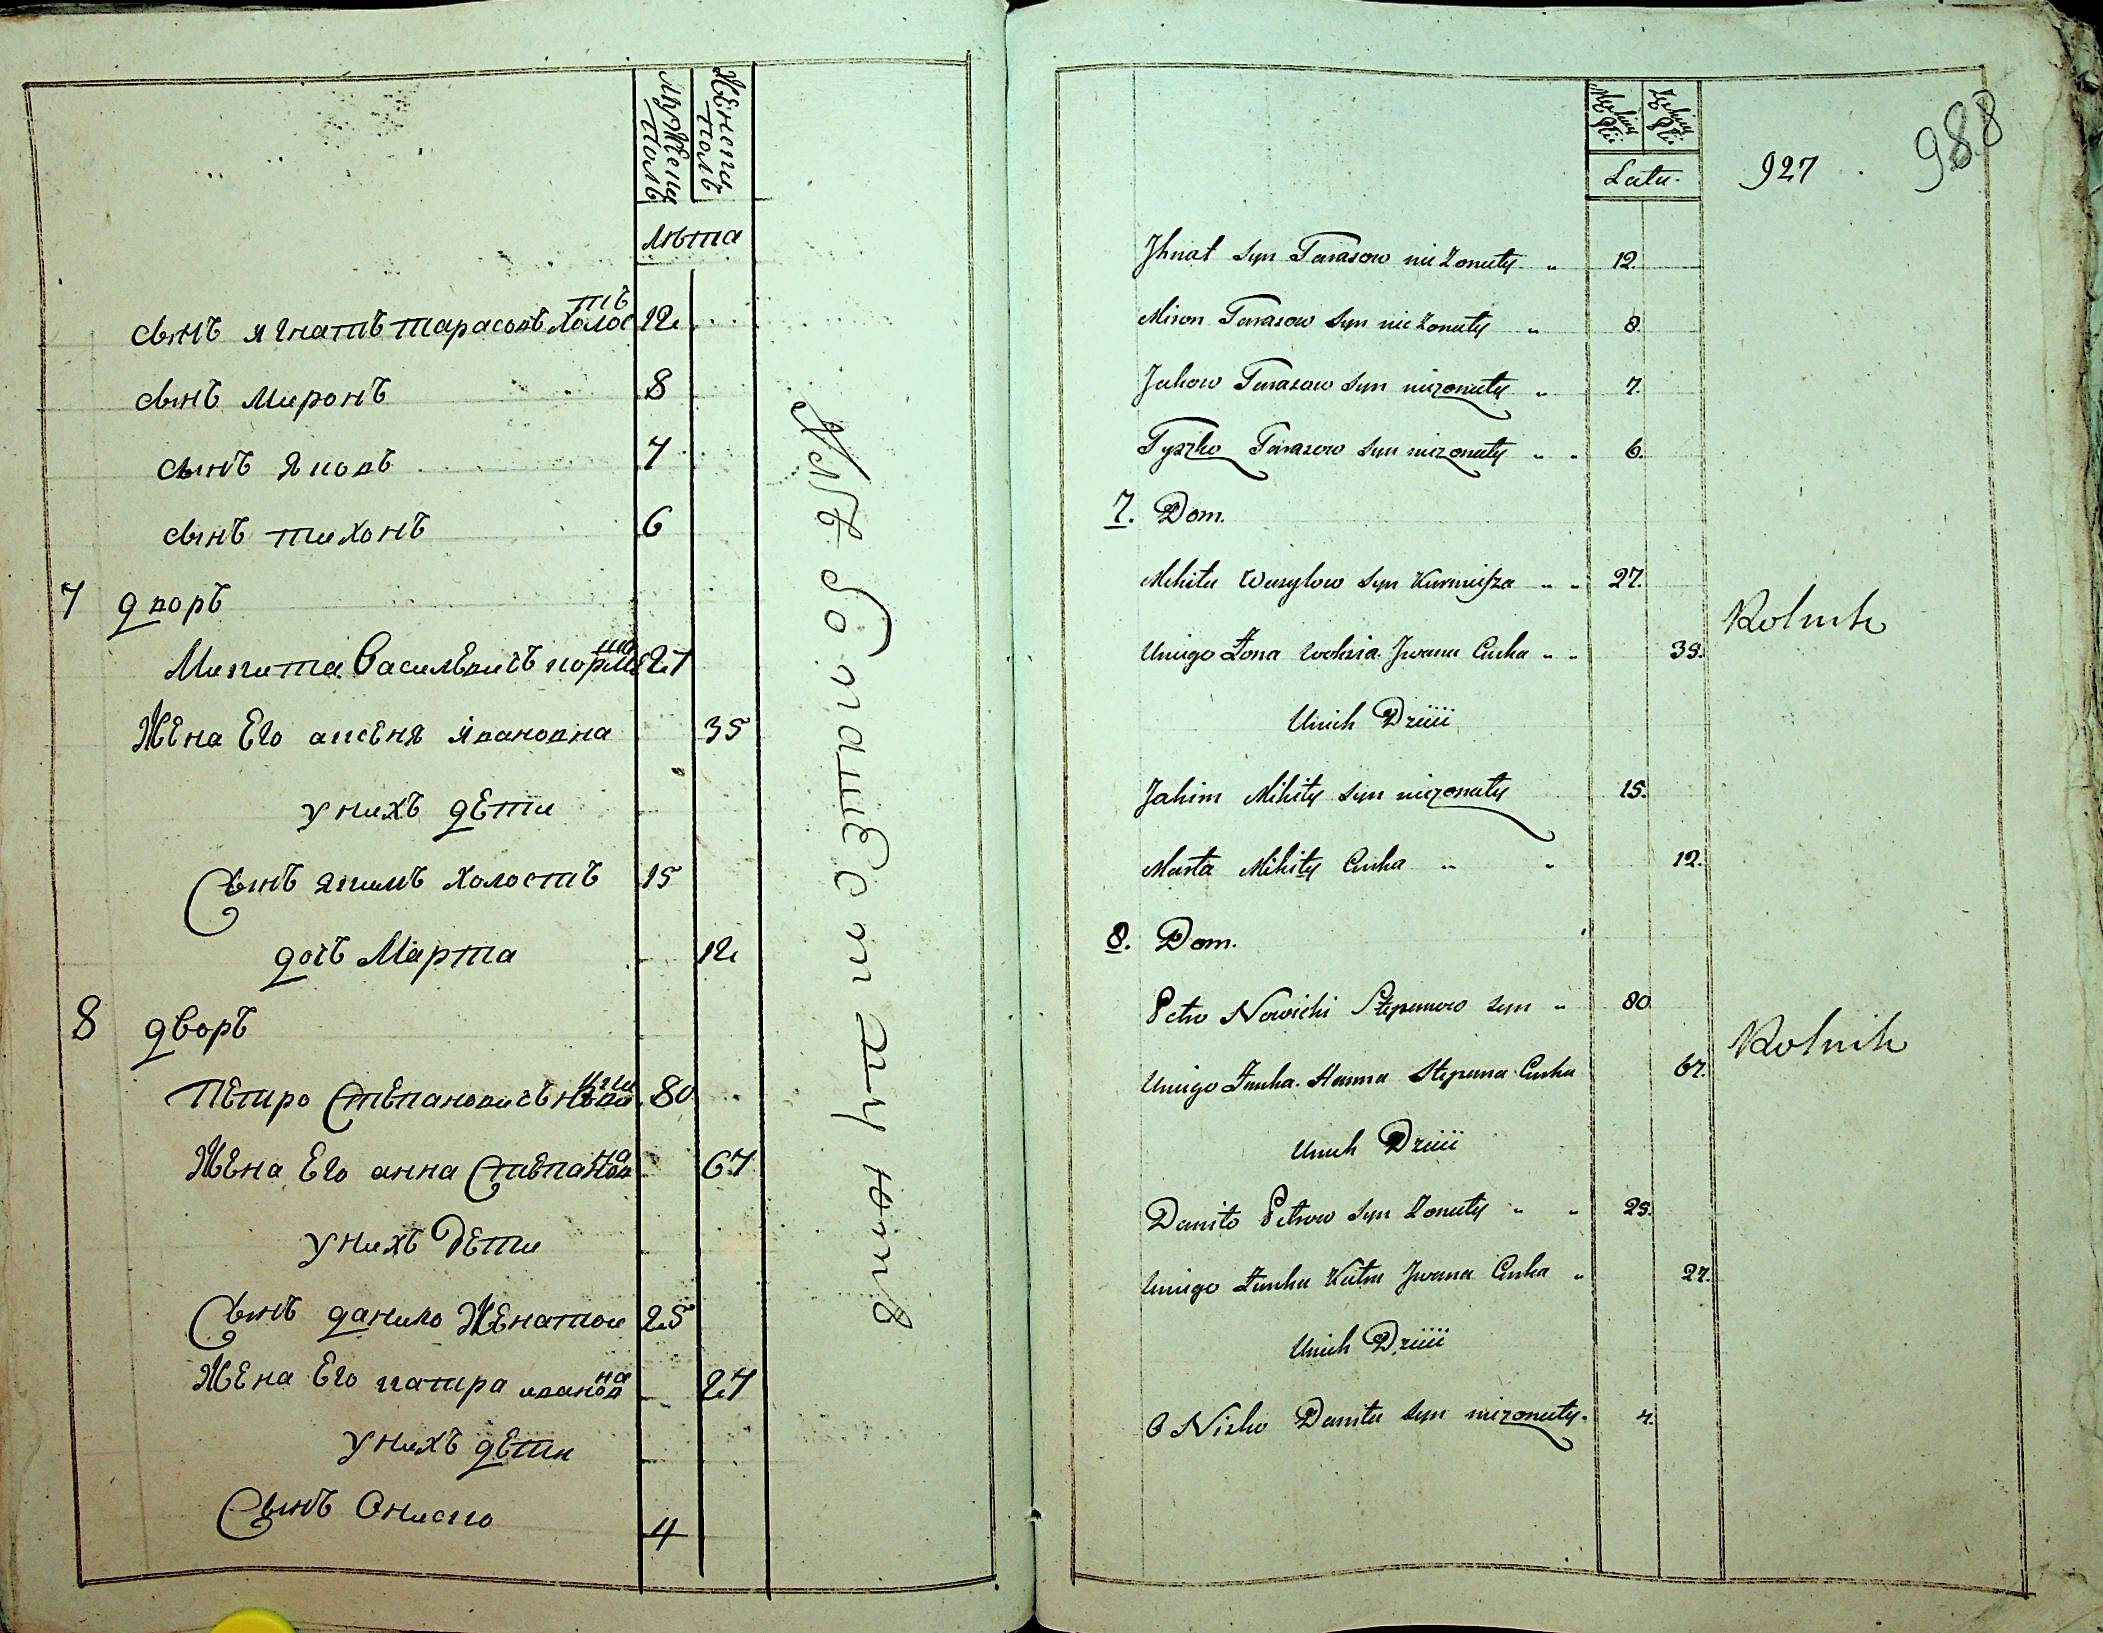 Мужеск. полъ
Женски полъ
лѣта
сынъ игнатъ тарасовъ холостъ 12
сынъ миронъ 8
сынъ яковъ 7
сынъ тихонъ 6
7 дворъ
Микита Васильевичъ 27
Жена Его аксеня ивановна 35
у нихъ дети
Сынъ якимъ холостъ 15
дочь Марта 12
8 дворъ
Петро Степановичъ 80
Жена Его анна Степановна 67
у нихъ Дети
Сынъ данило Женатои 25
Жена Его катра иванов на 27
у нихъ дети
Сынъ Ониско 4
хлѣбопашествую
927
988
Latu.
Jhnat Syn Tarasow nie Zonuty 12.
Miron Tarasow Syn nie Zonuty 8.
Jakow Tarasow Syn niezonuty 7.
Tyszko Tarasow Syn niezonuty 6.
7. Dom.
Mikita Wasylow Syn 27.
Uniego Zona Iwana Curka 35.
Rolnik
Unich Dziiii
Jakim Mikity Syn niezonuty 15.
Marta Mikity Curka 12.
8. Dom.
Petro Nowicki Stepanow Syn 80
Rolnik
Uniego Zunka Hanna Stepana Curka 67.
Unich Dziiii
Daniło Petrow Syn Zonuty 25.
Uniego Zunka Katra Iwana Curka 27.
Unich Dziiii
O Nisko Daniła Syn niezonuty. 4.